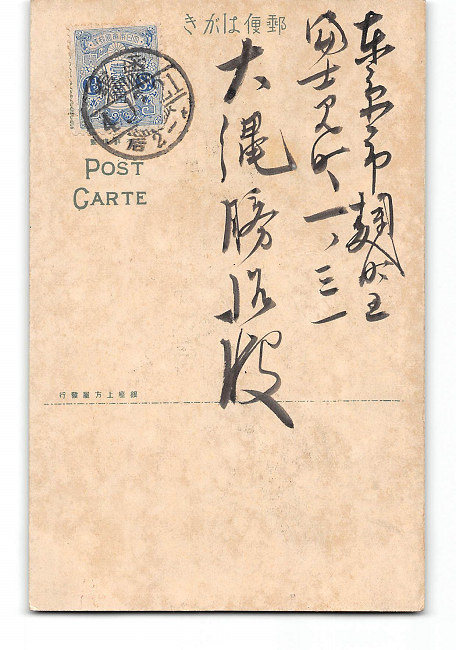 郵便はがき
東京市麹町区
富士見町一ノ三一
大縄勝治殿
POST
CARTE
銀座上方屋發行